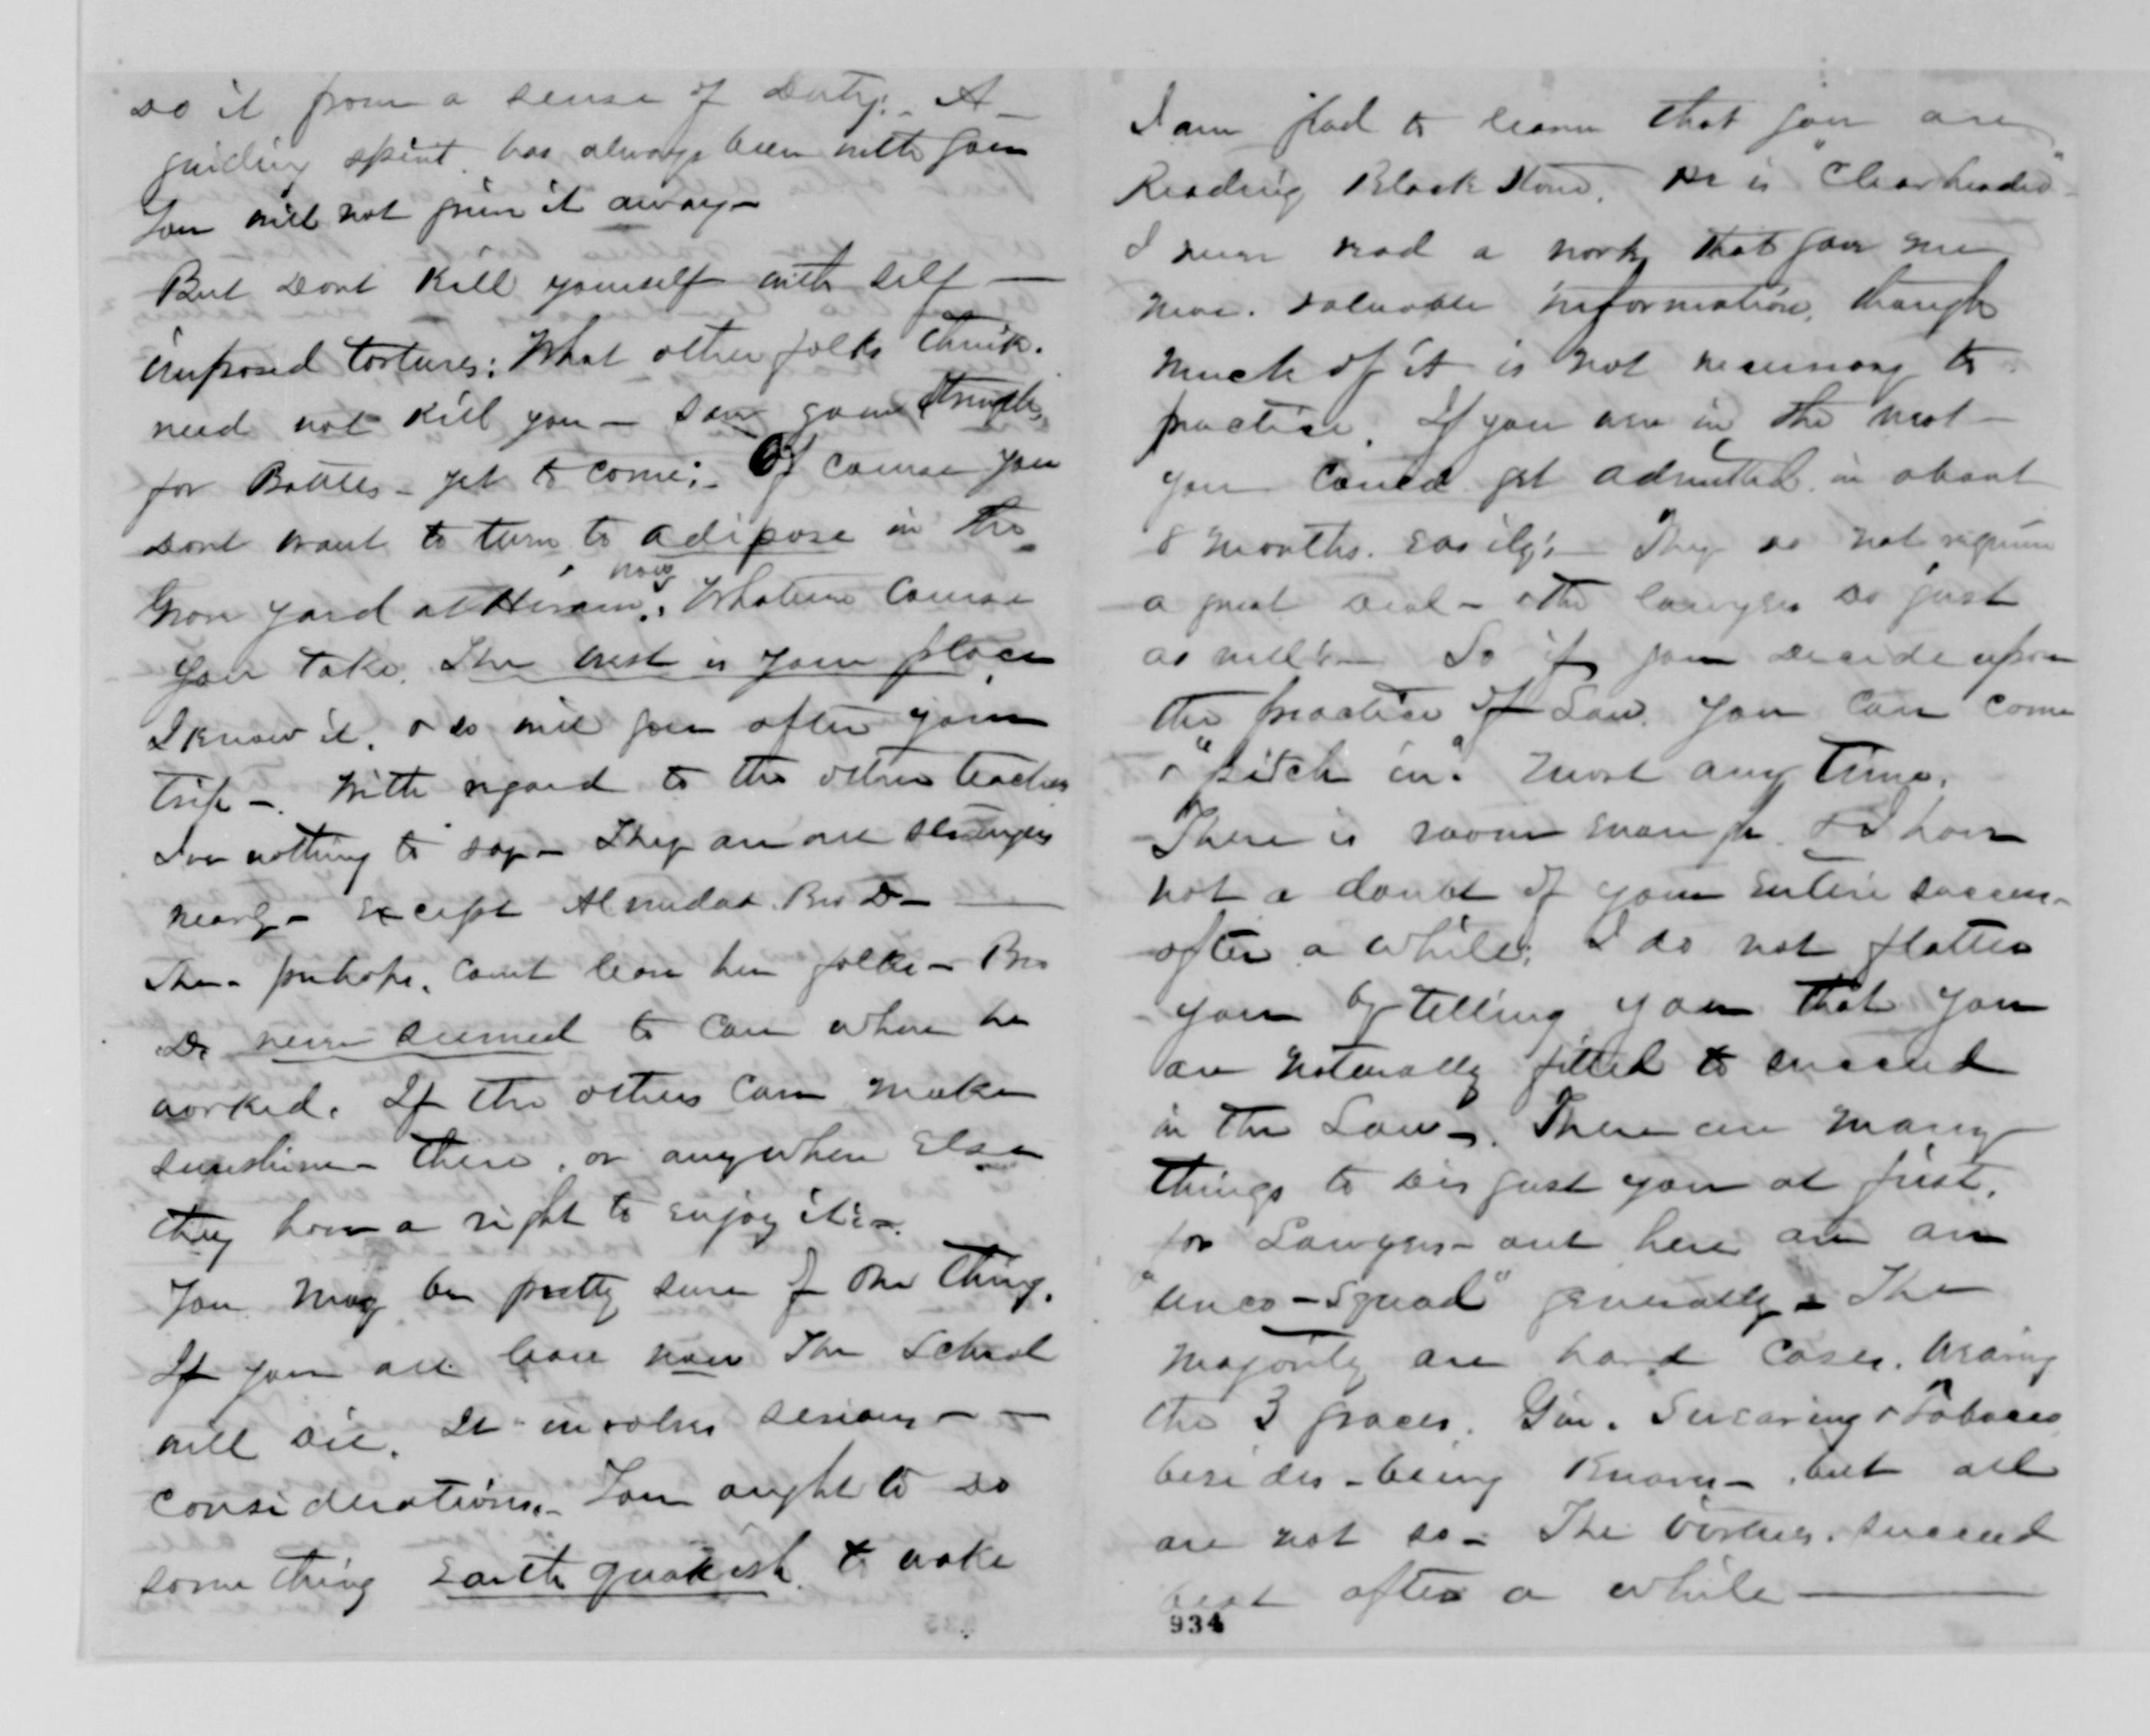 do it from a sense of Duty:- A
guiding spirit has always been with you
You will not give it away-
But Dont Kill yourself with self —
imposed tortures: What other folks think.
need not Kill you - Save your strength
for Battles - yet to come:- Of course you
dont want to turn to adipose in the
Grave yard at Hiram now: Whatever Course
you take. The west is your place
I know it. & so will you after your
trip -. With regard to the other teachers
Ive nothing to say - They are all strangers
nearly - Except Almeda & Bro D— —
She - perhaps, cant leave her folks - Bro
D. never seemed to care where he
worked. If the others can make
sunshine - there, or anywhere Else
they have a right to enjoy it:-
You may be pretty sure of one thing.
If you all leave now The School
will die. It involves serious — —
considerations.- You ought to do
some thing earth quakish to wake
I am glad to learn that you are
Reading Black Stone. He is "Clearheaded"
I never read a work that gave me
more valuable information, though
much of it is not necessary to
practice. If you are in the west -
you could get admitted in about
8 months. easily:- They do not require
a great deal - & the lawyers do just
as well:- So if you decide upon
the practice of Law. you can come
& "pitch in" most any time.
There is room enough & I have
not a doubt of your entire success-
after a while: I do not flatter
you by telling you that you
are naturally fitted to succeed
in the Law -. There are many
things to disgust you at first.
for Lawyers - out here are an
"unco - Squad" generally - The
majority are hard cases. wearing
the 3 graces. Gin. Swearing & Tobacco
besides - being Knaves - but all
are not so - The virtues. succeed
best after a while —
934